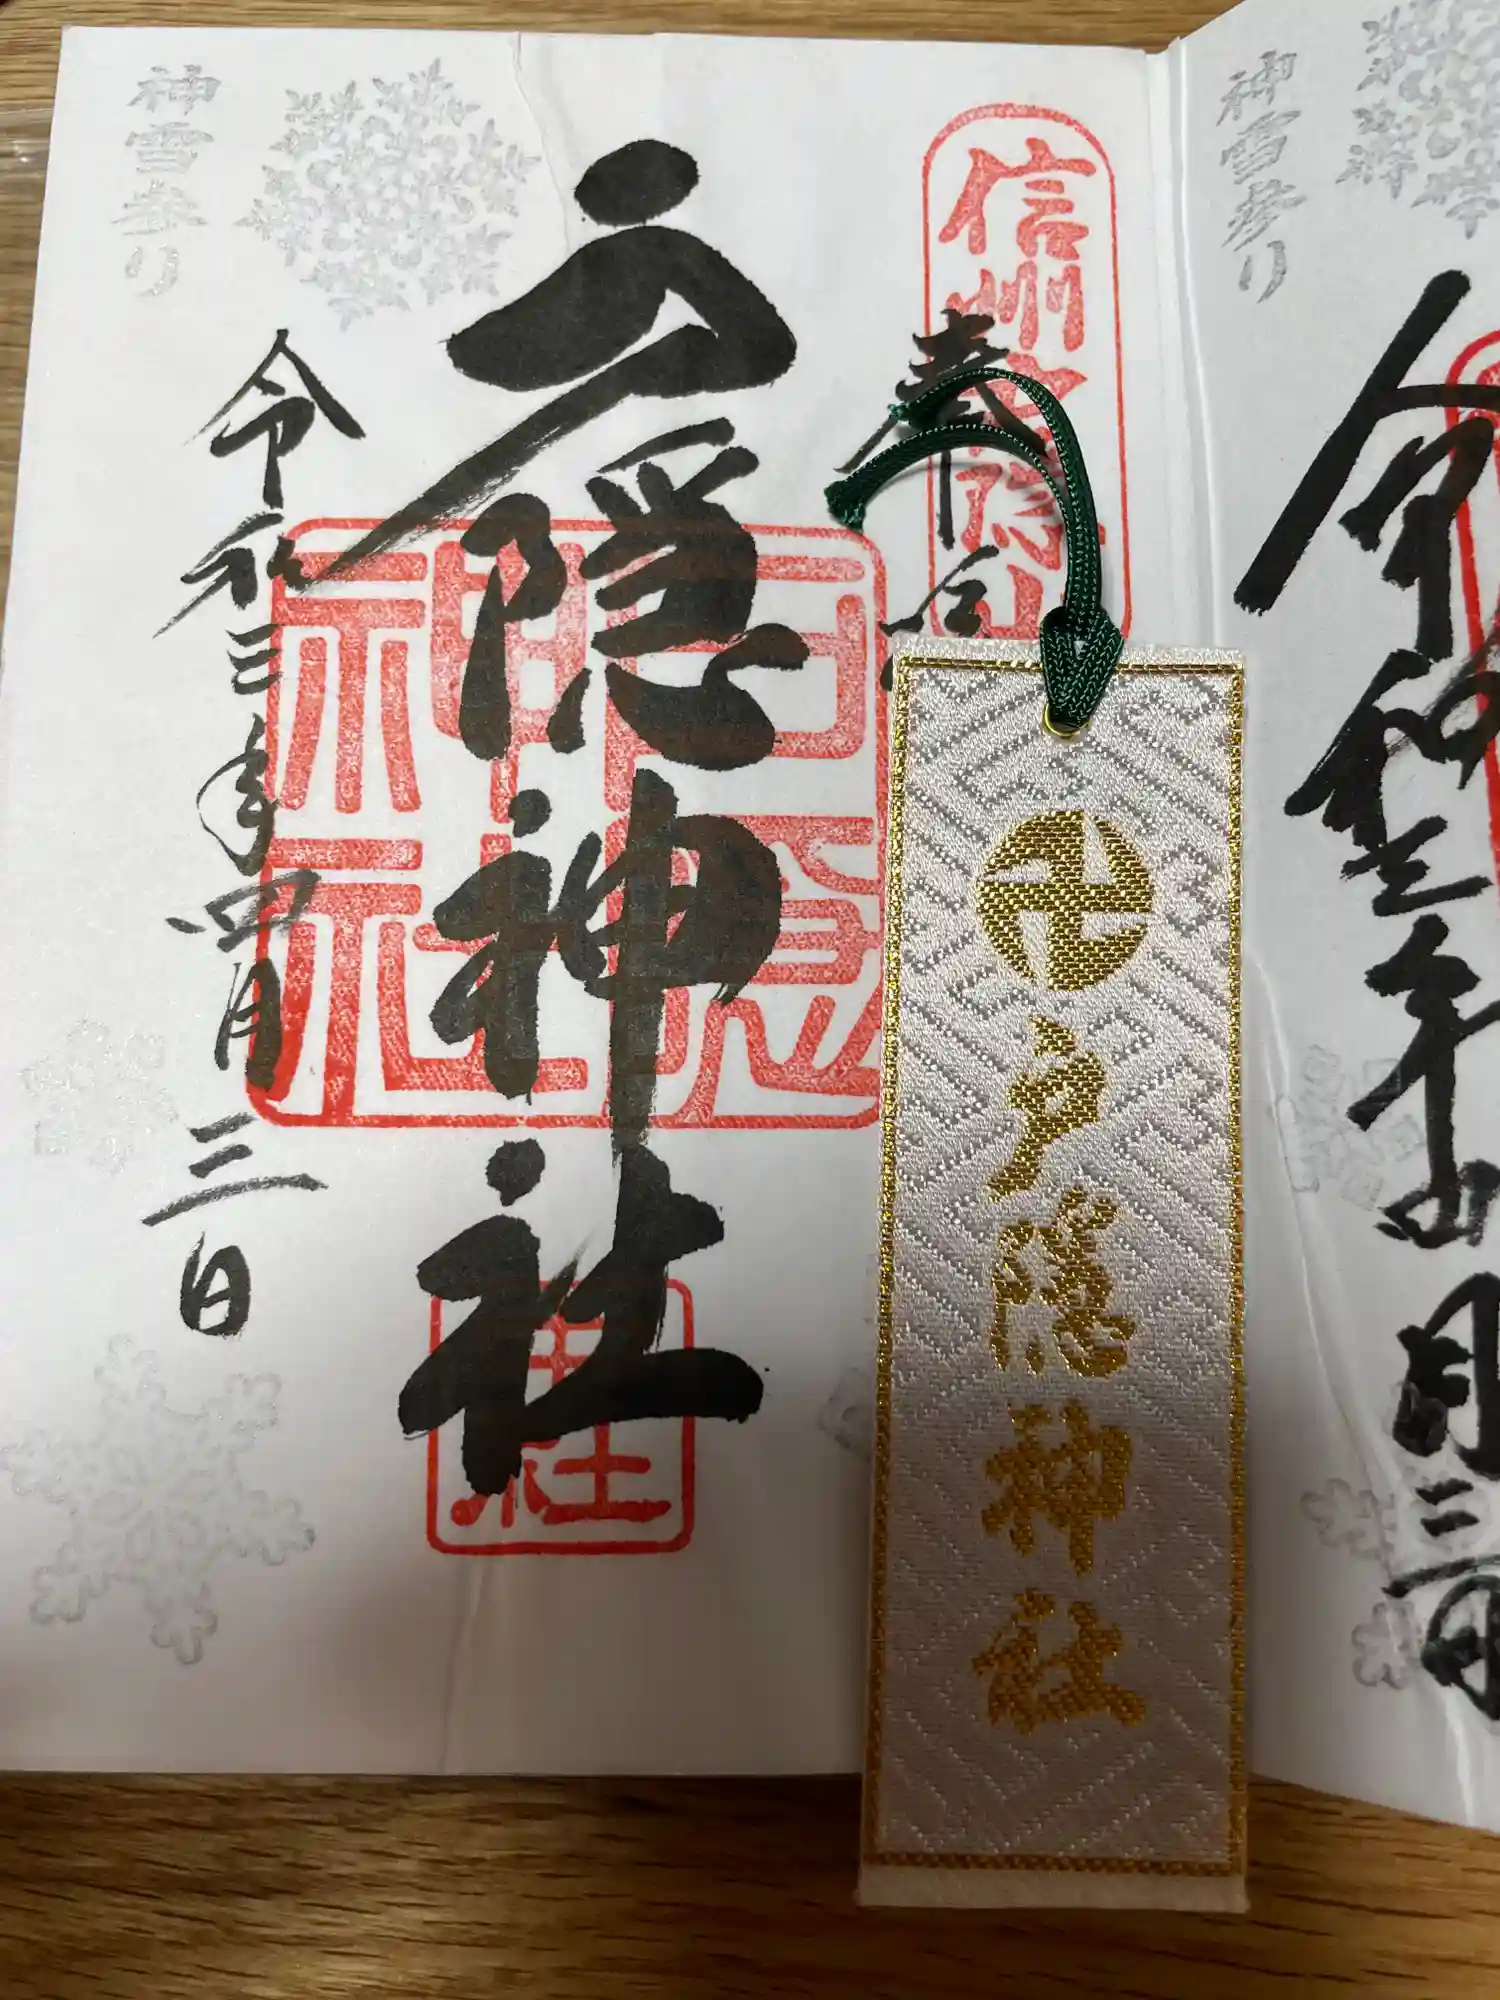 神雪参り
令和三年四月三日
戸隠神社
奉拝
信州戸隠山
中社
卍
戸隠神社
神雪参り
令和三年四月三日